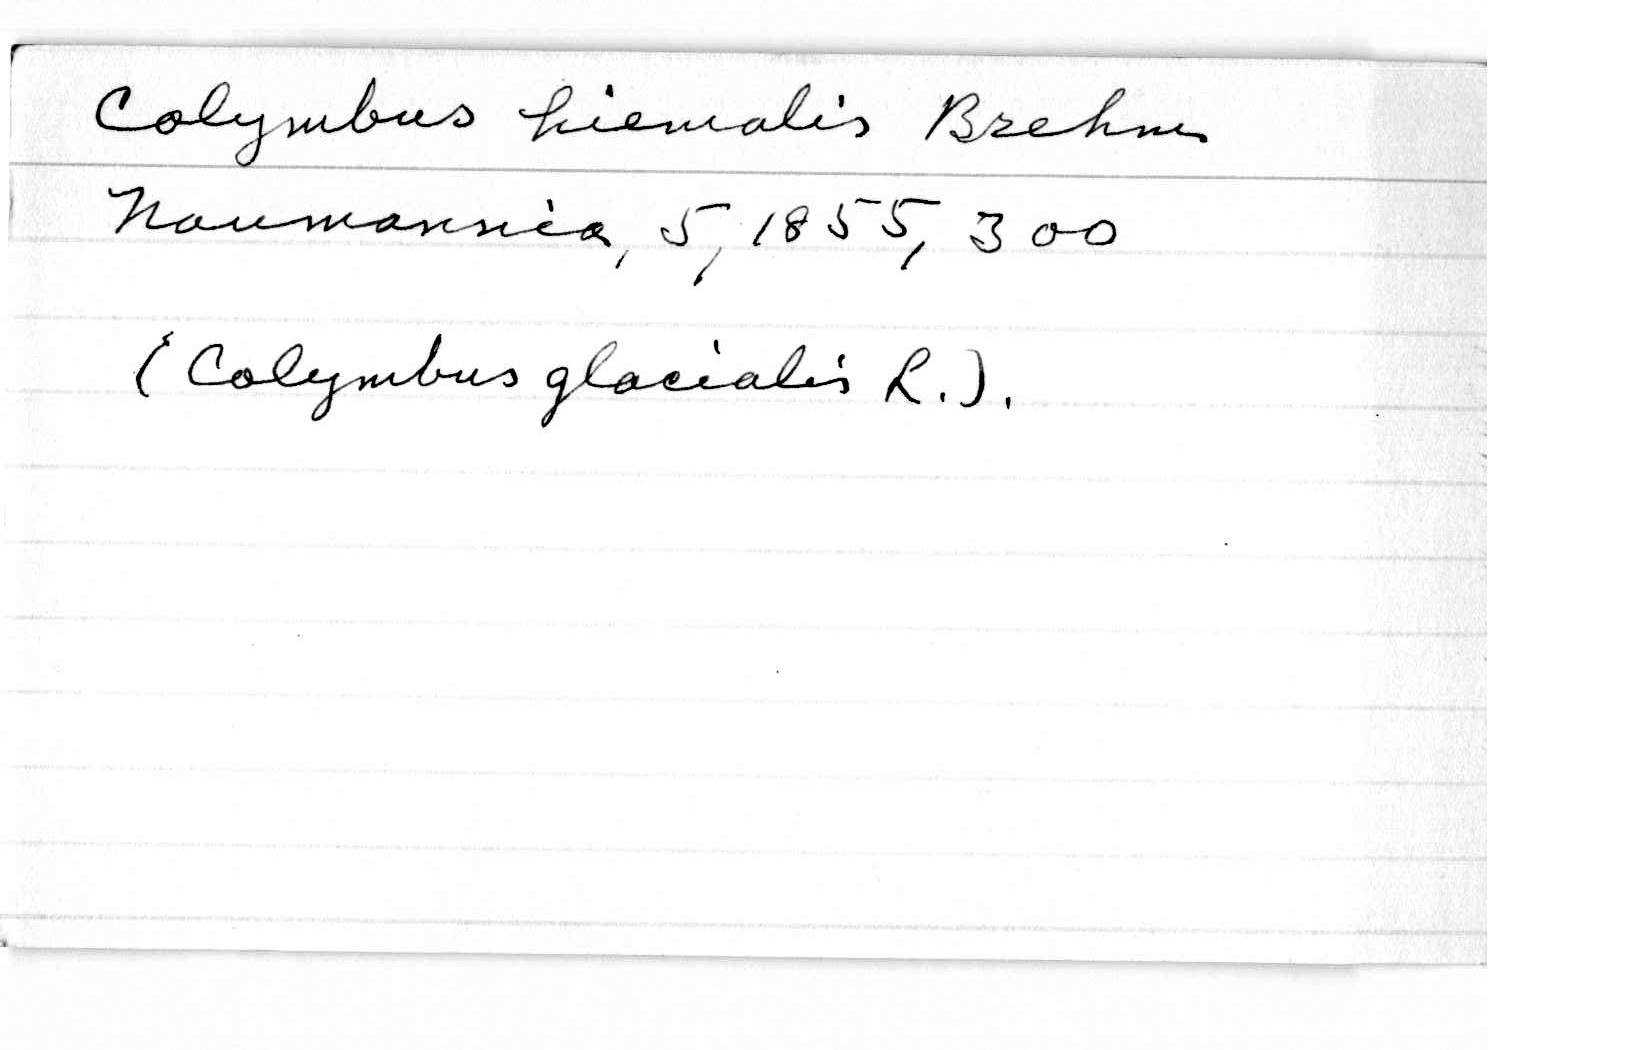 Colymbus hiemalis Brehm
Naumannia, 5, 1855, 300
(Colymbus glacialis L.).